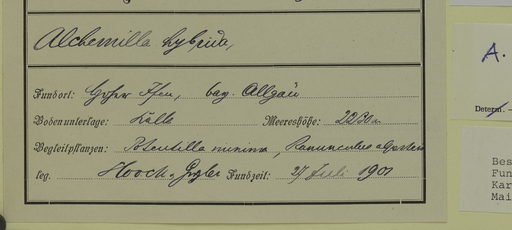 Alchemilla hybrida,
Fundort: Hoher Ifen, bay. Allgäu
Bodenunterlage: Kalk
Meereshöhe: 2230 m
Begleitpflanzen: Potentilla minima, Ranunculus alpestris
leg. Fundzeit: 27 Juli 1901
A.
Determ.
Bes
Fun
Kar
Mai